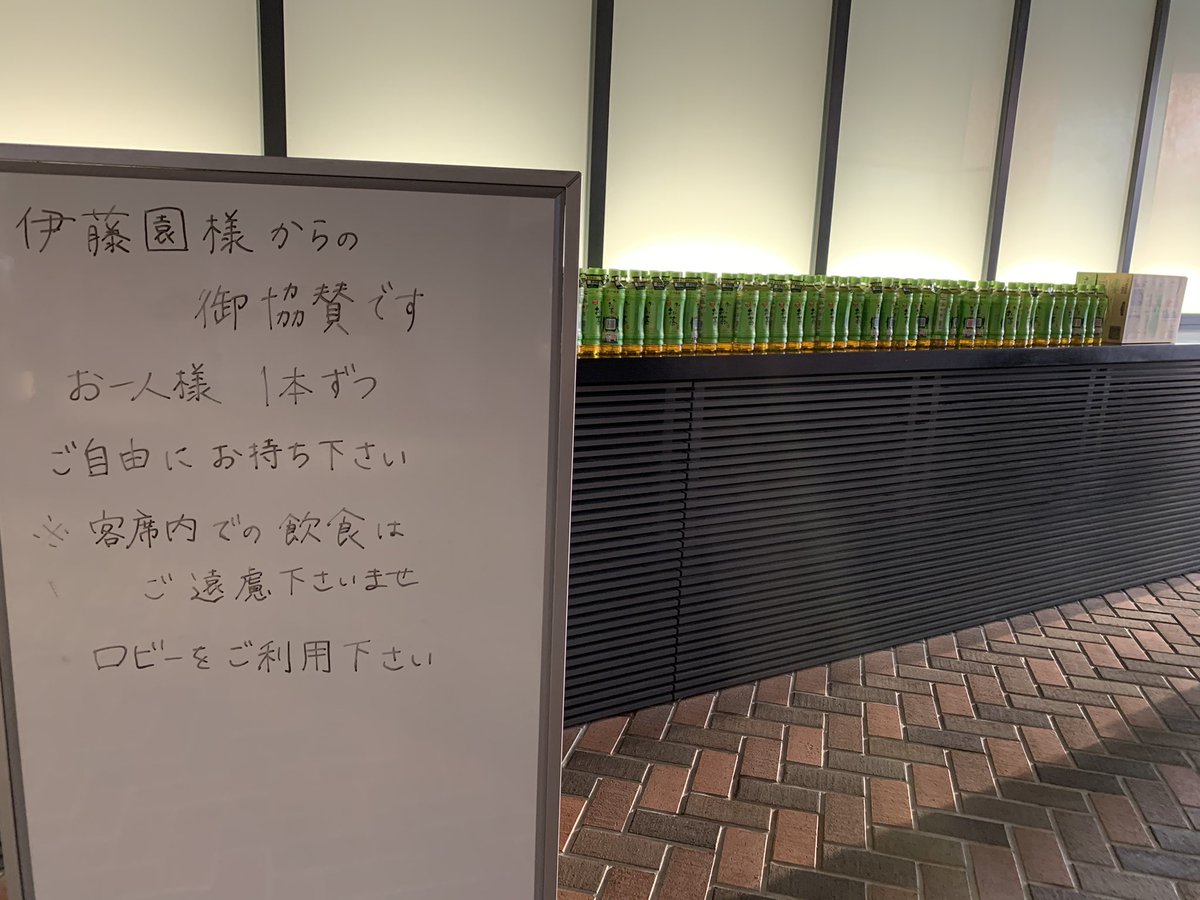 伊藤園様からの
御協賛です
お一人様 1本ずつ
ご自由にお持ち下さい
※ 客席内での飲食は
ご遠慮下さいませ
ロビーをご利用下さい
お〜いお茶